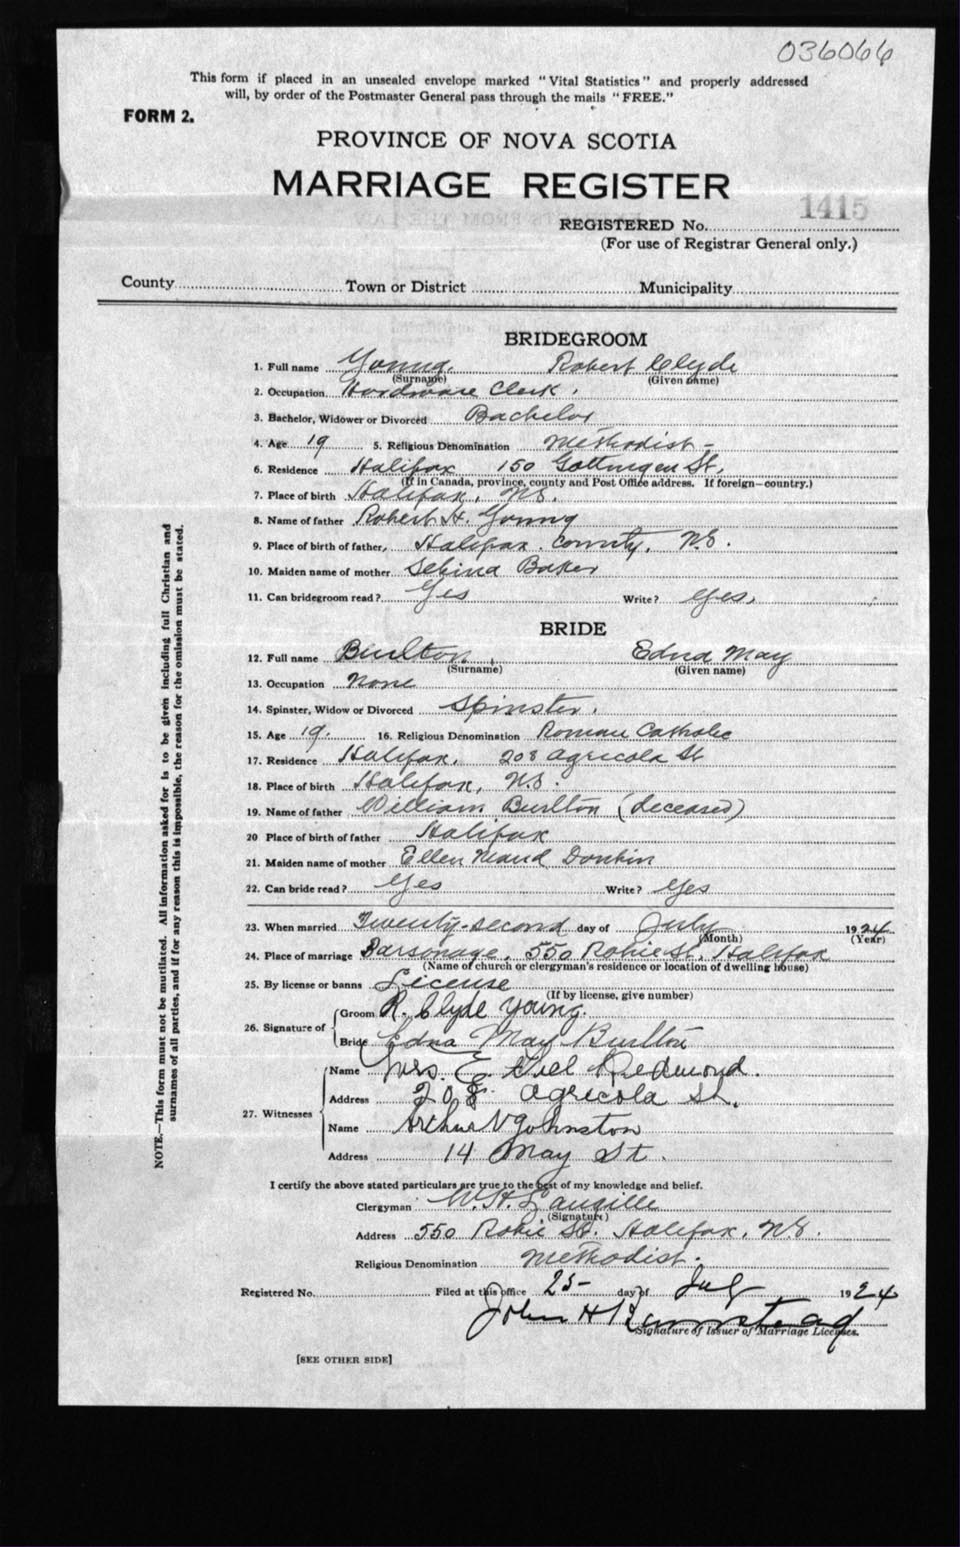 036066
This form if placed in an unsealed envelope marked "Vital Statistics" and properly addressed
will, by order of the Postmaster General pass through the mails "FREE."
FORM 2.
PROVINCE OF NOVA SCOTIA
MARRIAGE REGISTER
1415
REGISTERED No.
(For use of Registrar General only.)
County Town or District Municipality
BRIDEGROOM
1. Full name Young, Robert Clyde
(Surname) (Given name)
2. Occupation Hardware Clerk.
3. Bachelor, Widower or Divorced Bachelor
4. Age 19 5. Religious Denomination Methodist -
6. Residence Halifax 150 Gottingen St.
(If in Canada, province, county and Post Office address. If foreign—country.)
7. Place of birth Halifax, N.S.
8. Name of father Robert H. Young
9. Place of birth of father, Halifax County, N.S.
10. Maiden name of mother Baker
11. Can bridegroom read? Yes Write? Yes.
BRIDE
12. Full name Burlton, Edna May
(Surname) (Given name)
13. Occupation None
14. Spinster, Widow or Divorced Spinster.
15. Age 19. 16. Religious Denomination Roman Catholic
17. Residence Halifax. 208 Agricola St
18. Place of birth Halifax, N.S.
19. Name of father William Burlton (deceased)
20 Place of birth of father Halifax
21. Maiden name of mother Ellen Maud Donkin
22. Can bride read? Yes Write? Yes
23. When married Twenty-second day of July 1924
(Month) (Year)
24. Place of marriage Parsonage, 550 Robie St. Halifax
(Name of church or clergyman's residence or location of dwelling house)
25. By license or banns License
(If by license, give number)
26. Signature of
Groom R. Clyde Young.
Bride Edna May Burlton
27. Witnesses
Name Mrs. E Redmond.
Address 208 Agricola St.
Name Arthur V Johnston
Address 14 May St.
I certify the above stated particulars are true to the best of my knowledge and belief.
Clergyman W. H. Langille
(Signature)
Address 550 Robie St. Halifax, N.S.
Religious Denomination Methodist.
Registered No. Filed at this office 25- day of July 1924
John H
Signature of Issuer of Marriage Licenses.
[SEE OTHER SIDE]
NOTE.—This form must not be mutilated. All information asked for is to be given including full Christian and
surnames of all parties, and if for any reason this is impossible, the reason for the omission must be stated.